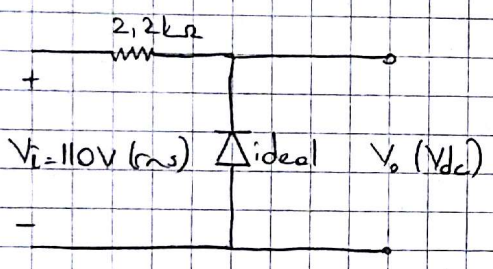 2,2kΩ
+
Vi=110V (rms) ideal Vo (Vdc)
-